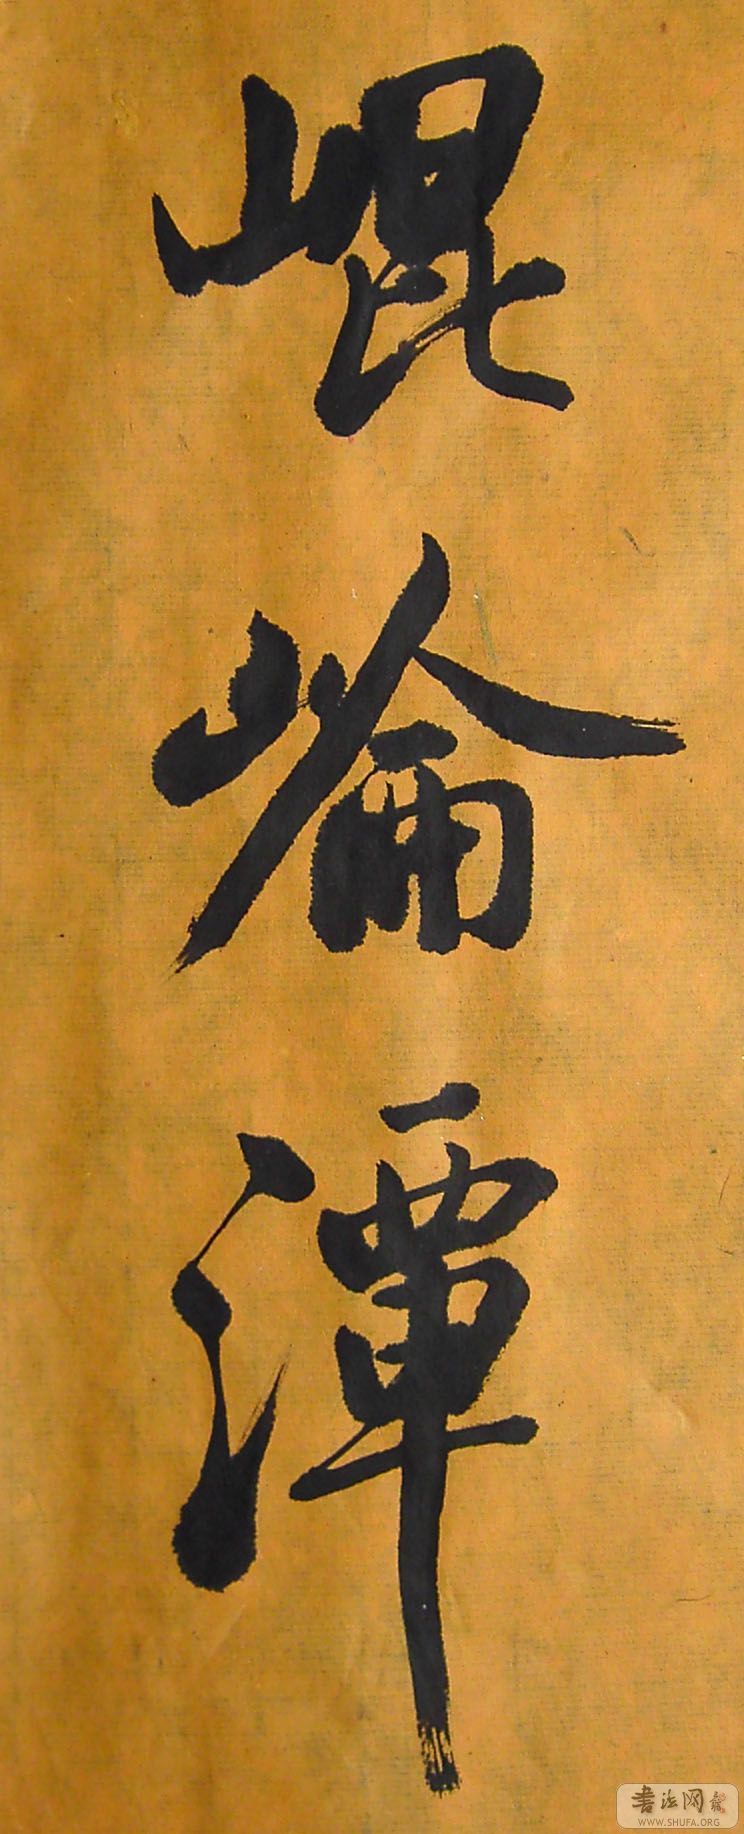 崐崘潭
书法网
WWW.SHUFA.ORG